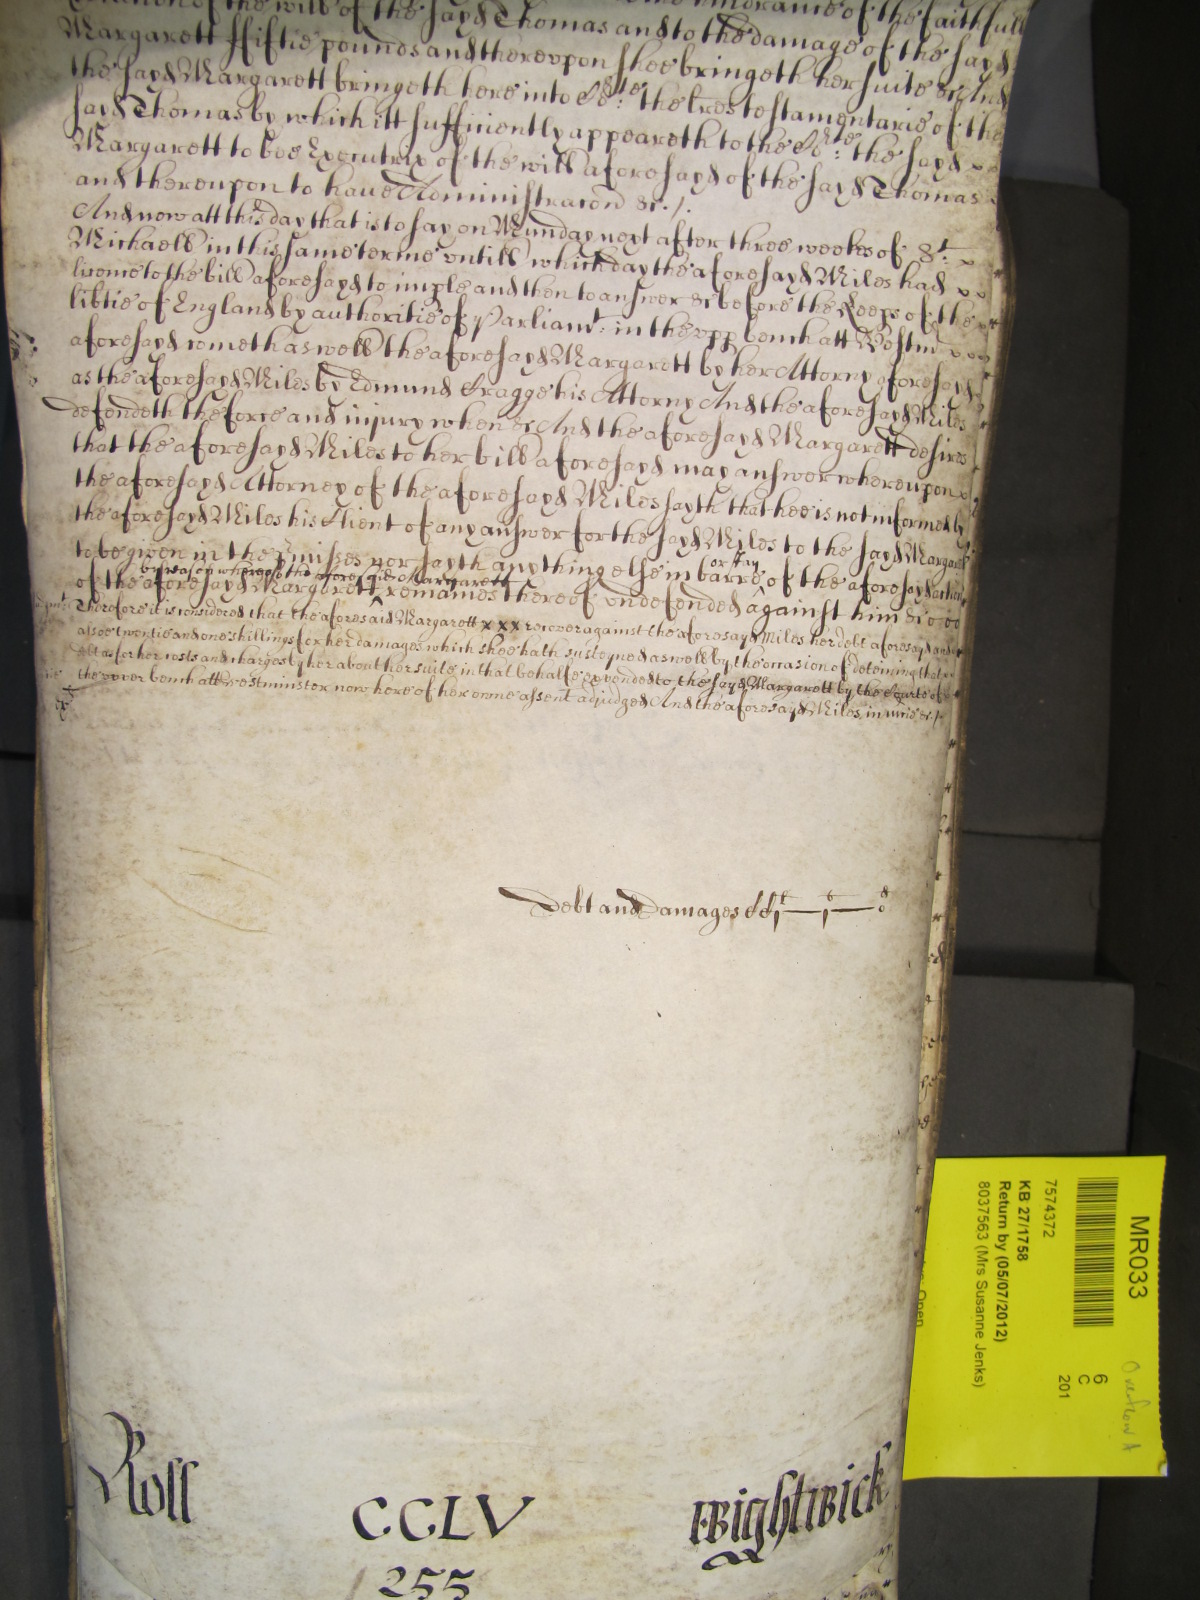 of the will of the sayd Thomas and to the damage of the sayd
Margarett ffiftie pounds and thereupon shee bringeth her suite &c And
the sayd Margarett bringeth here into Co:rte the l'res testamentarie of the
sayd Thomas by which itt sufficiently appeareth to the Co:rte the sayd
Margarett to bee Executrix of the will aforesayd of the sayd Thomas
and thereupon to haue Administracon &c /.
And now att this day that is to say on Munday next after three weekes of St:
Michaell in this same terme vntill which day the aforesayd Miles had
licence to the bill aforesayd to imple and then to answer &c before the Keeps of the
lib'tie of England by authoritie of Parliamt: in the vpp bench att Westm
aforesayd cometh as well the aforesayd Margarett by her Attorny aforesayd
as the aforesayd Miles by Edmund Cragge his Attorny And the aforesayd Miles
defendeth the force and iniury when &c And the aforesayd Margarett desires
that the aforesayd Miles to her bill aforesayd may answer whereupon
the aforesayd Attorney of the aforesayd Miles sayth that hee is not informed by
the aforesayd Miles his Client of any answer for the sayd Miles to the sayd Margarett
to be given in the p'misses nor sayth any thing else in barre or stay of the aforesayd action
by reason whereof the aforesaid Margarett
of the aforesayd Margarett remaines thereof vndefended against him &c
Therefore it is considered that the aforesaid Margarett x x x recover against the aforesayd Miles her debt aforesayd and
alsoe twentie and one shillings for her damages which shee hath susteyned as well by the occasion of deteining that
debt as for her costs and charges by her about her suite in that behalfe expended to the sayd Margarett by the Courte of
the vpper bench att Westminster now here of her owne assent adjudged And the aforesayd Miles in m'cie &c /
Debt and Damages
Roll
CCLV
255
Wightwick
MR033
Overflow A
6
C
201
7574372
KB 27/1758
Return by (05/07/2012)
8037563 (Mrs Susanne Jenks)
Open